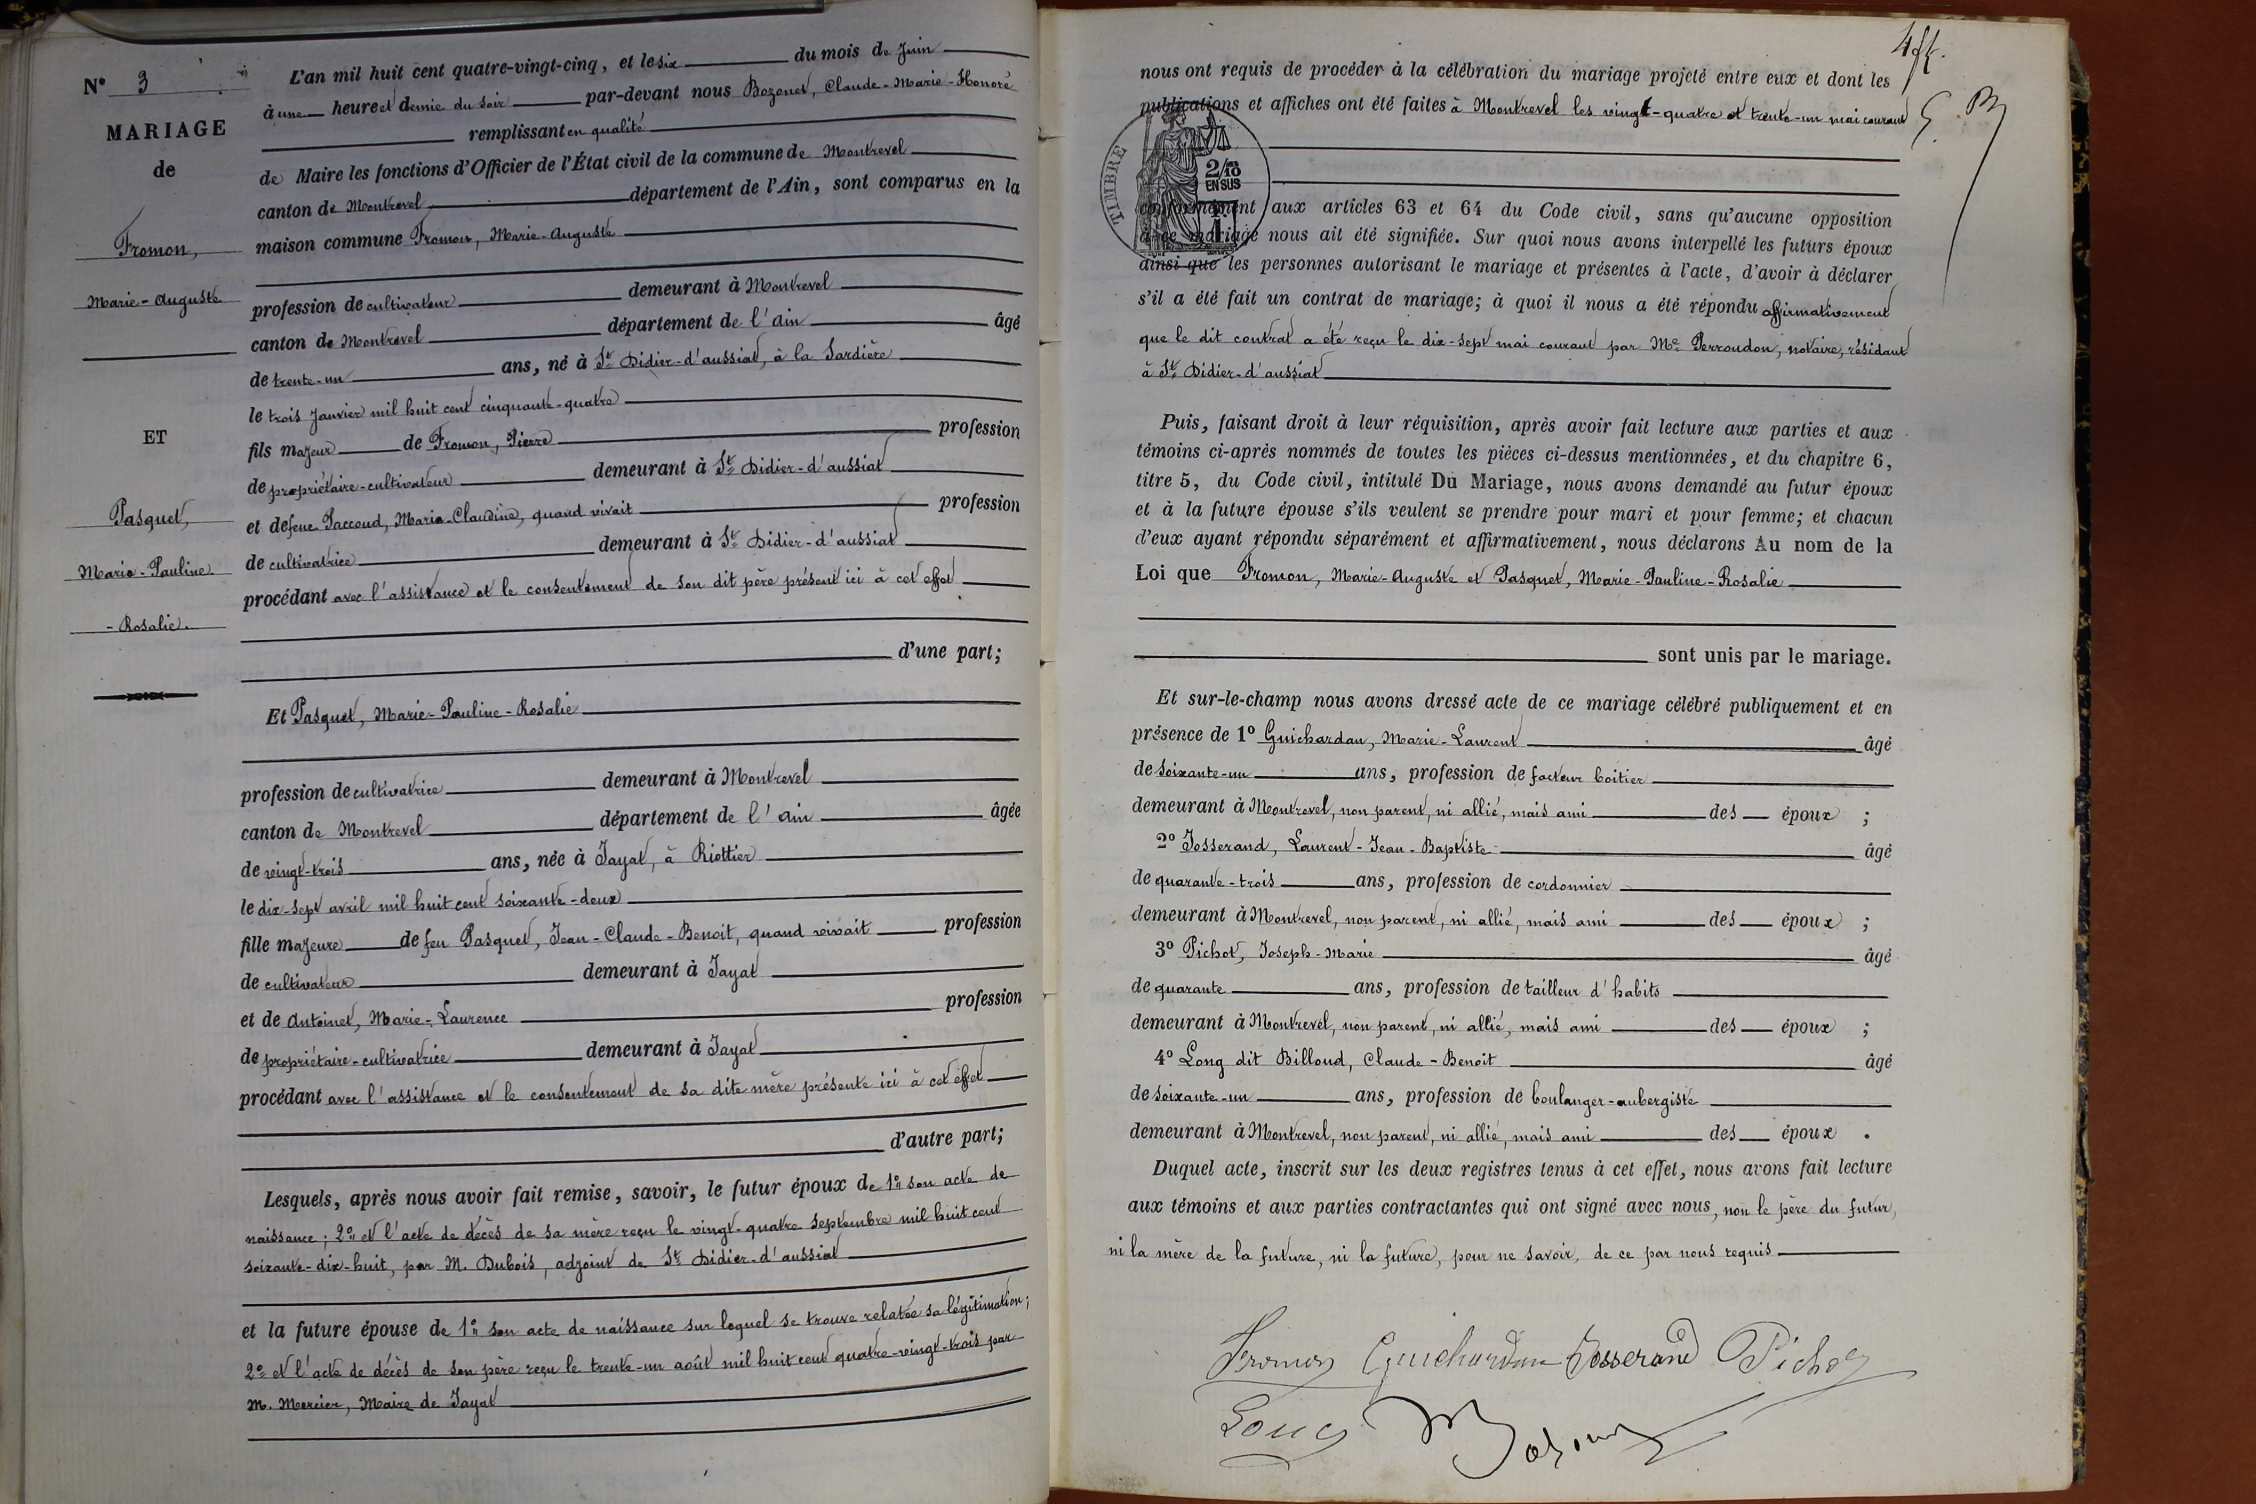 N° 3
MARIAGE
de
Fromon,
Marie-Auguste
ET
Pasquet,
Marie-Pauline
-Rosalie.
L'an mil huit cent quatre-vingt-cinq, et le six du mois de Juin
à une heure et demie du soir par-devant nous Bozonet, Claude-Marie-Honoré
remplissant en qualité
de Maire les fonctions d'Officier de l'État civil de la commune de Montrevel
canton de Montrevel département de l'Ain, sont comparus en la
maison commune Fromon, Marie-Auguste
profession de cultivateur demeurant à Montrevel
canton de Montrevel département de l'ain âgé
de trente-un ans, né à St Didier-d'aussiat, à la Sardière
le trois Janvier mil huit cent cinquante-quatre
fils majeur de Fromon, Pierre profession
de propriétaire-cultivateur demeurant à St Didier-d'aussiat
et de feue Paccoud, Marie-Claudine, quand vivait profession
de cultivatrice demeurant à St Didier-d'aussiat
procédant avec l'assistance et le consentement de son dit père présent ici à cet effet
d'une part;
Et Pasquet, Marie-Pauline-Rosalie
profession de cultivatrice demeurant à Montrevel
canton de Montrevel département de l'ain âgée
de vingt-trois ans, née à Jayat, à Riottier
le dix-sept avril mil huit cent soixante-deux
fille majeure de feu Pasquet, Jean-Claude-Benoit, quand vivait profession
de cultivateur demeurant à Jayat
et de Antoinet, Marie-Laurence profession
de propriétaire-cultivatrice demeurant à Jayat
procédant avec l'assistance et le consentement de sa dite mère présente ici à cet effet
d'autre part;
Lesquels, après nous avoir fait remise, savoir, le futur époux de 1° son acte de
naissance; 2° et l'acte de décès de sa mère reçu le vingt-quatre septembre mil huit cent
soixante-dix-huit, par M. Dubois, adjoint de St Didier-d'aussiat
et la future épouse de 1° son acte de naissance sur lequel se trouve relatée sa légitimation;
2° et l'acte de décès de son père reçu le trente-un août mil huit cent quatre-vingt-trois par
M. Mercier, Maire de Jayat
nous ont requis de procéder à la célébration du mariage projeté entre eux et dont les
publications et affiches ont été faites à Montrevel les vingt-quatre et trente-un mai courant
TIMBRE
2/10
EN SUS
conformément aux articles 63 et 64 du Code civil, sans qu'aucune opposition
à ce mariage nous ait été signifiée. Sur quoi nous avons interpellé les futurs époux
ainsi que les personnes autorisant le mariage et présentes à l'acte, d'avoir à déclarer
s'il a été fait un contrat de mariage; à quoi il nous a été répondu affirmativement
que le dit contrat a été reçu le dix-sept mai courant par Me Perroudon, notaire, résidant
à St Didier-d'aussiat
Puis, faisant droit à leur réquisition, après avoir fait lecture aux parties et aux
témoins ci-après nommés de toutes les pièces ci-dessus mentionnées, et du chapitre 6,
titre 5, du Code civil, intitulé Du Mariage, nous avons demandé au futur époux
et à la future épouse s'ils veulent se prendre pour mari et pour femme; et chacun
d'eux ayant répondu séparément et affirmativement, nous déclarons Au nom de la
Loi que Fromon, Marie-Auguste et Pasquet, Marie-Pauline-Rosalie
sont unis par le mariage.
Et sur-le-champ nous avons dressé acte de ce mariage célébré publiquement et en
présence de 1° Guichardan, Marie-Laurent âgé
de soixante-un ans, profession de facteur boitier
demeurant à Montrevel, non parent, ni allié, mais ami des époux ;
2° Josserand, Laurent-Jean-Baptiste âgé
de quarante-trois ans, profession de cordonnier
demeurant à Montrevel, non parent, ni allié, mais ami des époux ;
3° Pichot, Joseph-Marie âgé
de quarante ans, profession de tailleur d'habits
demeurant à Montrevel, non parent, ni allié, mais ami des époux ;
4° Long dit Billoud, Claude-Benoit âgé
de soixante-un ans, profession de boulanger-aubergiste
demeurant à Montrevel, non parent, ni allié, mais ami des époux .
Duquel acte, inscrit sur les deux registres tenus à cet effet, nous avons fait lecture
aux témoins et aux parties contractantes qui ont signé avec nous, non le père du futur,
ni la mère de la future, ni la future, pour ne savoir, de ce par nous requis
Fromon Guichardan Josserand Pichot
Long Bozonet